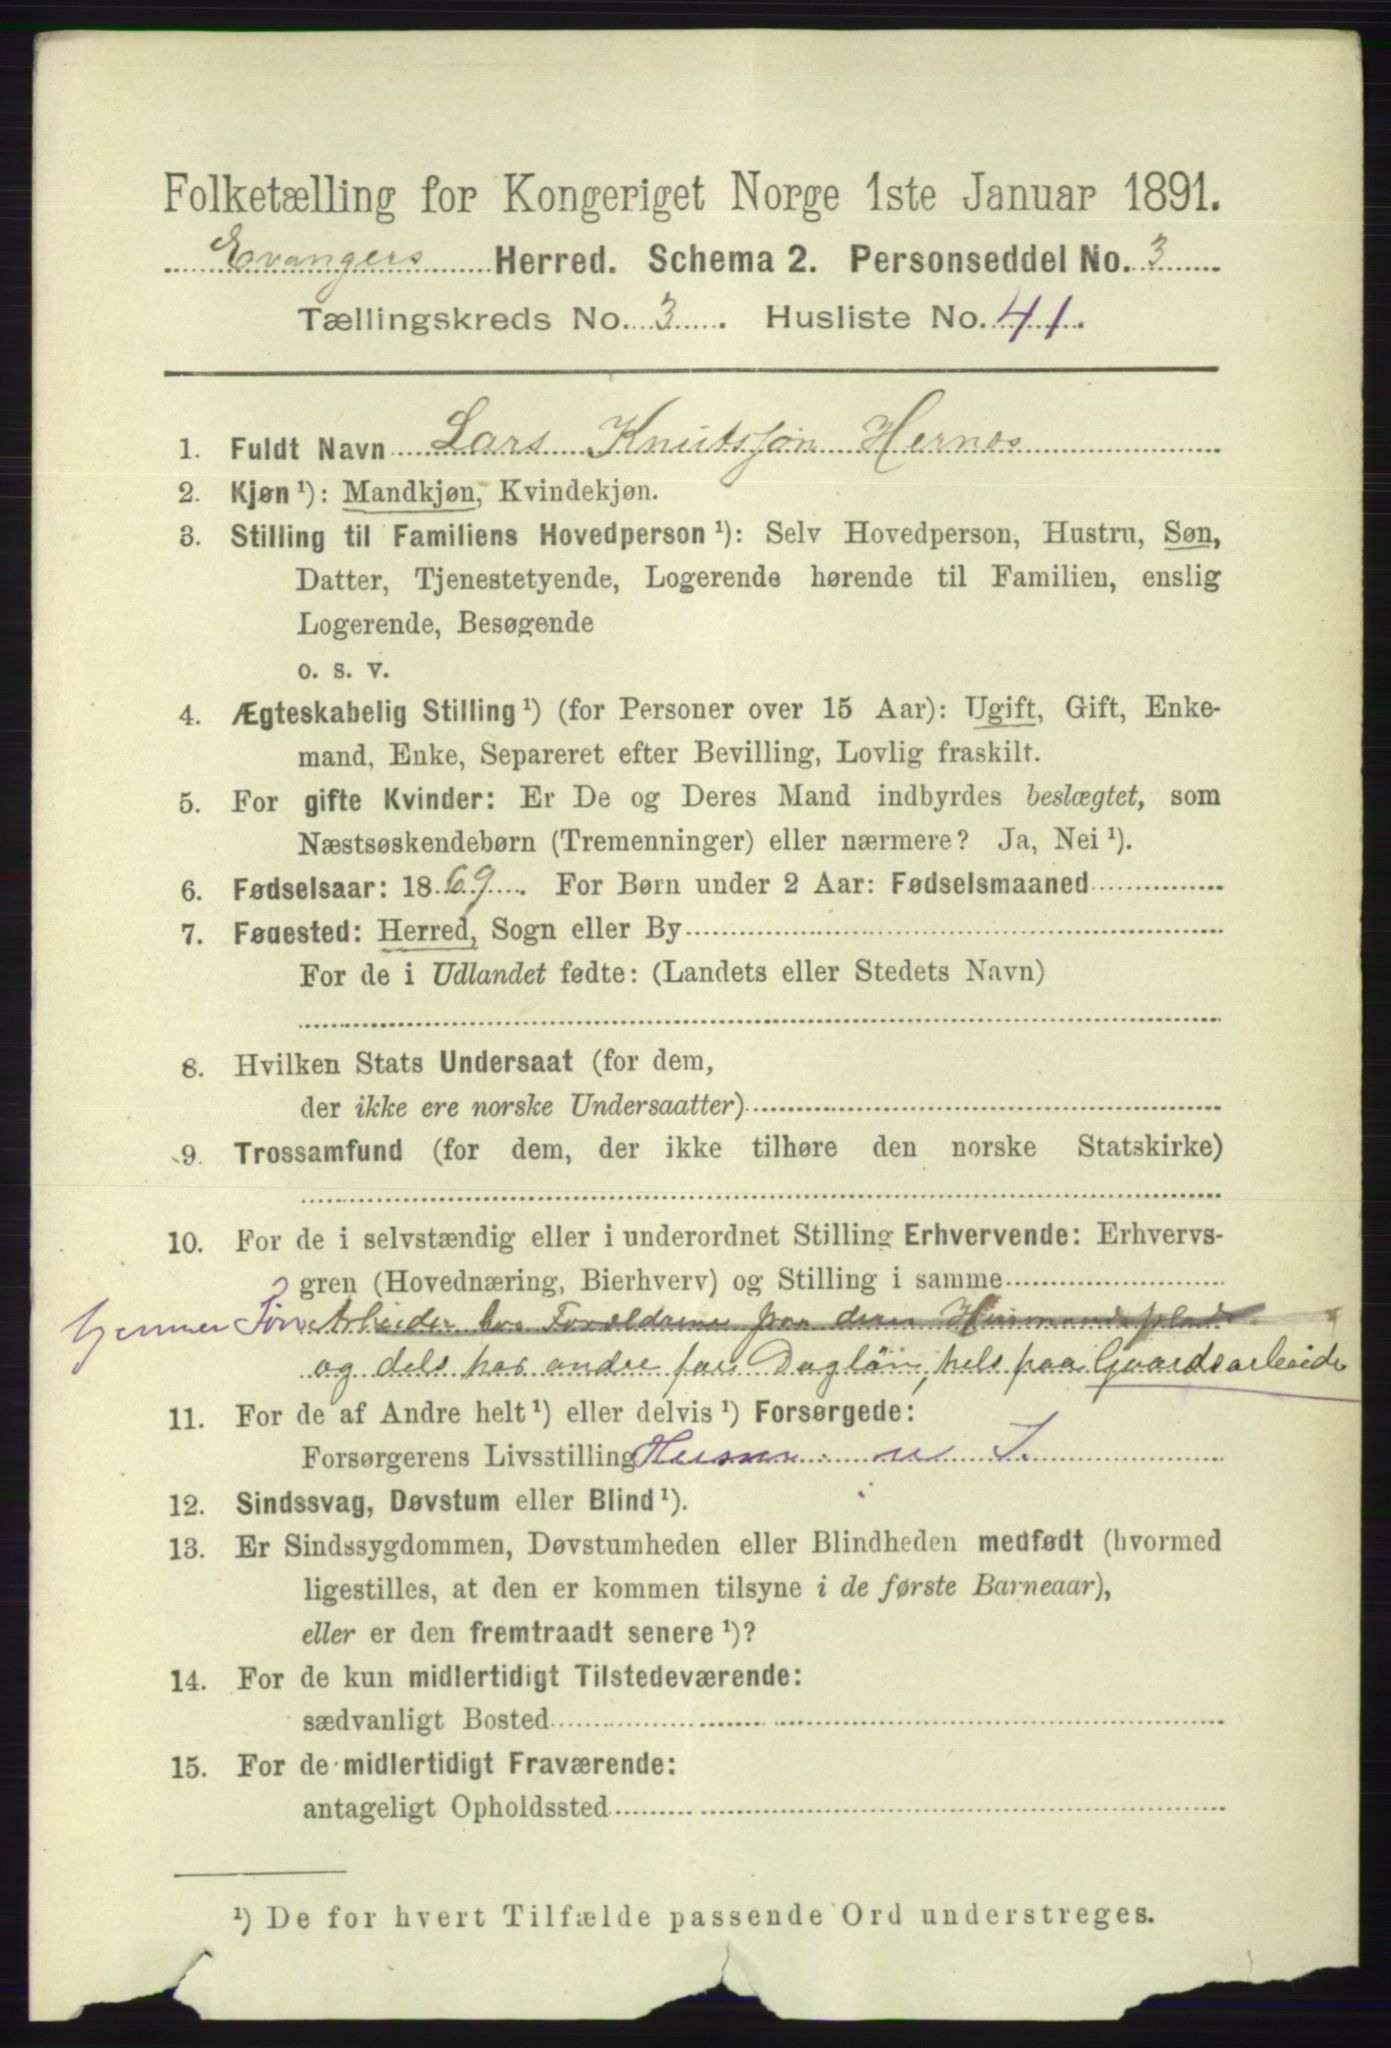 Folketælling for Kongeriget Norge 1ste Januar 1891.
Evangers Herred. Schema 2. Personseddel No. 3
Tællingskreds No. 3. Husliste No. 41.
1. Fuldt Navn Lars Knutssøn Hernes
2. Kjøn ¹): Mandkjøn, Kvindekjøn.
3. Stilling til Familiens Hovedperson ¹): Selv Hovedperson, Hustru, Søn,
Datter, Tjenestetyende, Logerende hørende til Familien, enslig
Logerende, Besøgende
o. s. v.
4. Ægteskabelig Stilling ¹) (for Personer over 15 Aar): Ugift, Gift, Enke-
mand, Enke, Separeret efter Bevilling, Lovlig fraskilt.
5. For gifte Kvinder: Er De og Deres Mand indbyrdes beslægtet, som
Næstsøskendebørn (Tremenninger) eller nærmere? Ja, Nei ¹).
6. Fødselsaar: 1869. For Børn under 2 Aar: Fødselsmaaned
7. Føɑested: Herred, Sogn eller By
For de i Udlandet fødte: (Landets eller Stedets Navn)
8. Hvilken Stats Undersaat (for dem,
der ikke ere norske Undersaatter)
9. Trossamfund (for dem, der ikke tilhøre den norske Statskirke)
10. For de i selvstændig eller i underordnet Stilling Erhvervende: Erhvervs-
gren (Hovednæring, Bierhverv) og Stilling i samme
hjemmev Søn Arbeider hos Forældrene paa deres Husmandsplads
og dels hos andre for Dagløn, hels paa Gaardsarbeide
11. For de af Andre helt ¹) eller delvis ¹) Forsørgede:
Forsørgerens Livsstilling Husm. m J.
12. Sindssvag, Døvstum eller Blind ¹).
13. Er Sindssygdommen, Døvstumheden eller Blindheden medfødt (hvormed
ligestilles, at den er kommen tilsyne i de første Barneaar),
eller er den fremtraadt senere ¹)?
14. For de kun midlertidigt Tilstedeværende:
sædvanligt Bosted
15. For de midlertidigt Fraværende:
antageligt Opholdssted
¹) De for hvert Tilfælde passende Ord understreges.